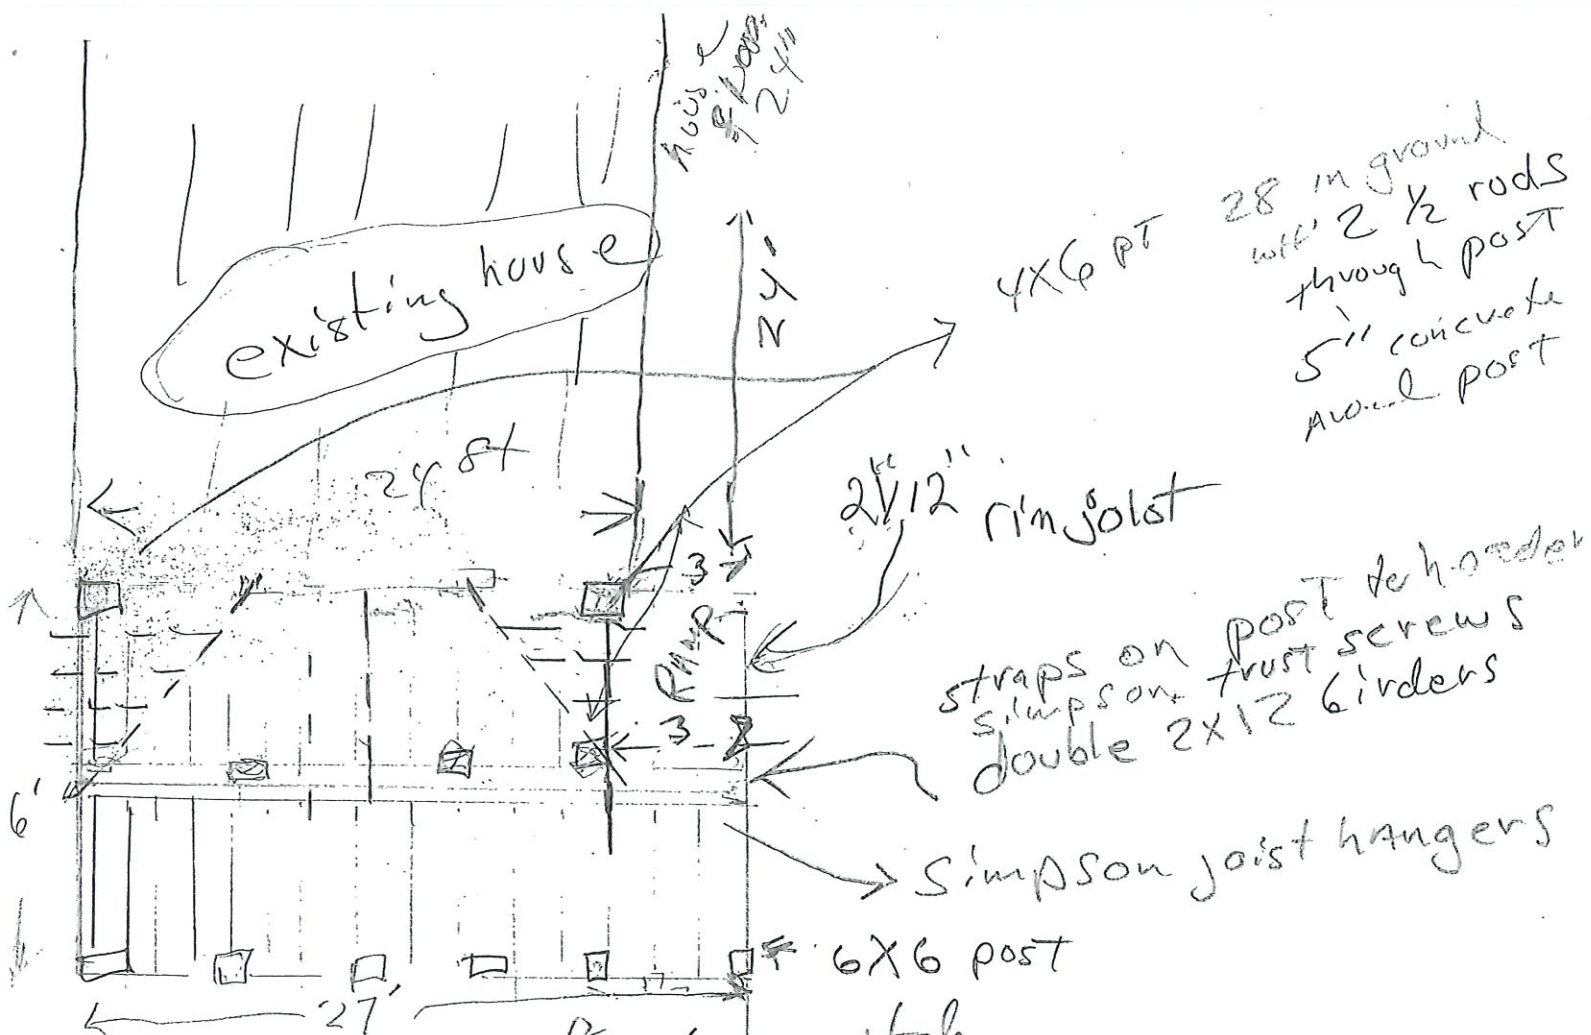 house
24"
existing house
24'
4X6 PT
28 in ground
with 2 ½ rods
through post
5" concrete
around post
24 ft
2"x12" rim joist
3
RAMP
3
straps on post
simpson trust screws
double 2X12 Girders
6'
simpson joist hangers
6X6 post
27'